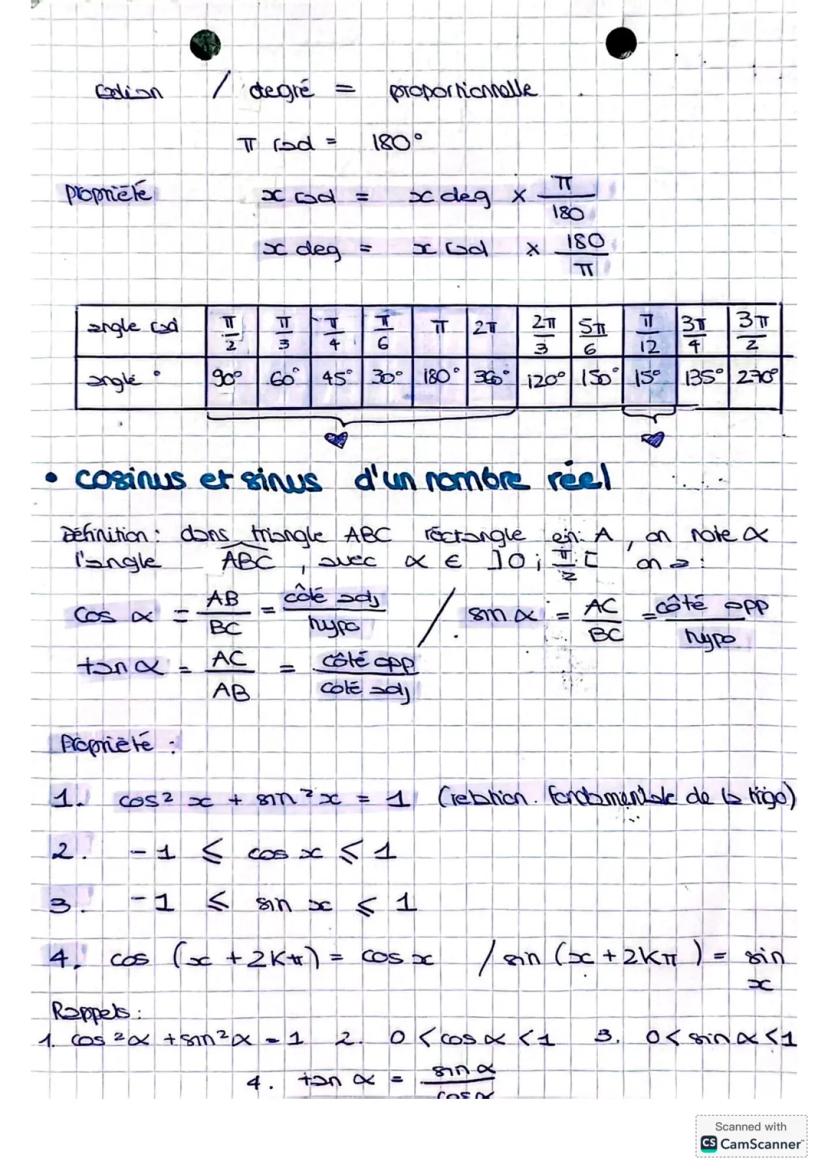 radian / degré = proportionnalle
π rad = 180°
propriété x rad = x deg × π/180
x deg = x rad × 180/π
angle rad π/2 π/3 π/4 π/6 π 2π 2π/3 5π/6 π/12 3π/4 3π/2
angle ° 90° 60° 45° 30° 180° 360° 120° 150° 15° 135° 270°
• cosinus et sinus d'un nombre réel
Définition : dans triangle ABC rectangle en A, on note α
l'angle ABC, avec α ∈ ]0 ; π/2[ on a :
cos α = AB/BC = côté adj/hypo / sin α = AC/BC = côté opp/hypo
tan α = AC/AB = côté opp/coté adj
Propriété :
1. cos² x + sin² x = 1 (relation fondamentale de la trigo)
2. -1 ≤ cos x ≤ 1
3. -1 ≤ sin x ≤ 1
4. cos (x + 2Kπ) = cos x / sin (x + 2Kπ) = sin
x
Rappels :
1. cos²α + sin²α = 1 2. 0 < cos α < 1 3. 0 < sin α < 1
4. tan α = sin α/cos α
Scanned with
CS CamScanner